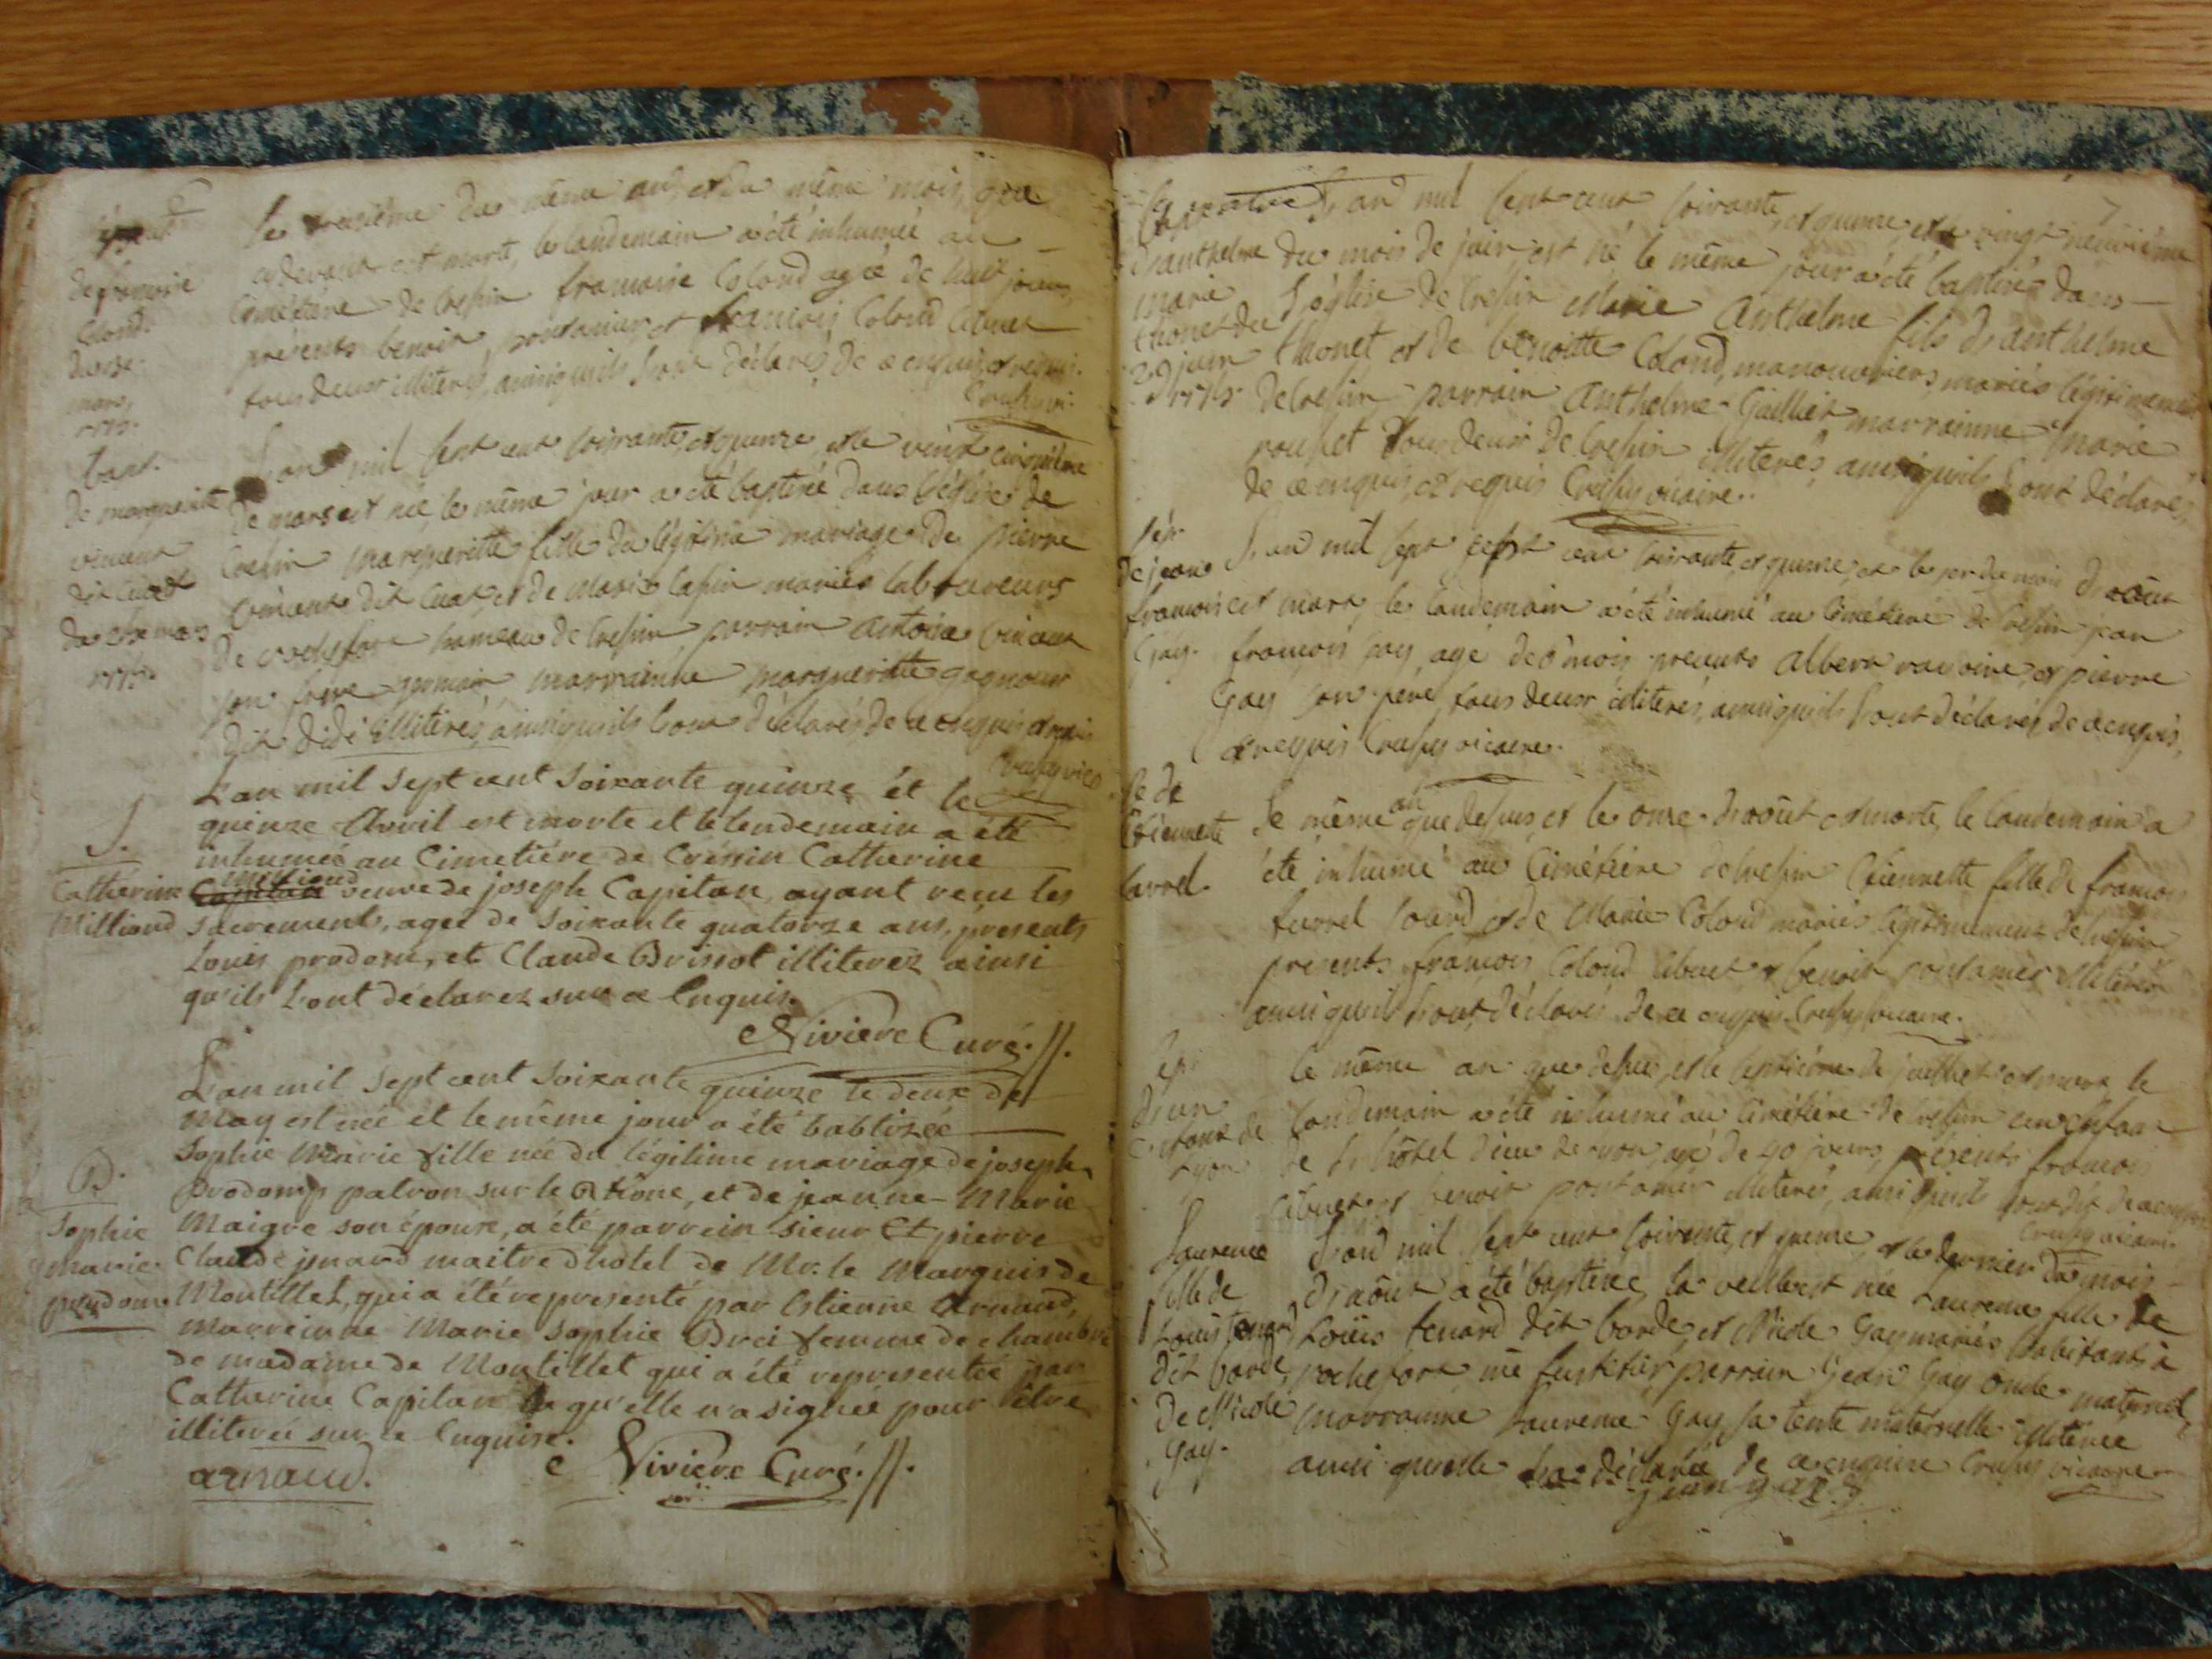 Le treisiéme du même an, et du même mois, que
cydevant est morte, le landemain a été inhumée au
Cimétiere de Cressin francoise Colond agée de huit jours,
présents benoit pontanier, et francois Colond Cibuet
tous deux illiterés, ainsi quils l'ont déclarés de ce enquis, et requis.
de francoise
Colond
mars,
1775.
L'an mil sept cent soixante, et quinze, et le vingt cinquiéme
de mars est née, le même jour a été baptisée dans l'église de
Cressin margueritte fille du légitime mariage de pierre
vincent dit Cuat, et de Marie Capin mariés laboureurs
de rochefort hameau de Cressin, parrain antoine vincent
son frére germain marrainne margueritte gagneur
dit didi illiterés, ainsi quils l'ont déclarés de ce enquis et requis
Crussy vice
bapt.
de marguerite
vincent
dit Cuat
du 25e mars
1775.
L'an mil sept cent soixante quinze et le
quinze Avril est morte et le lendemain a été
inhumée au Cimetiére de Créssin Catherine
Milliand
Capitan veuve de joseph Capitan, ayant reçu les
sacrements, agée de soixante quatorze ans, présents
Louis prodom, et Claude Brissot illiterez ainsi
qu'ils l'ont déclarez sur ce Enquis.
Riviere Curé.
S.
Catherine
Milliand
L'an mil sept cent soixante quinze le deux de
May est née et le même jour a été babtizée
Sophie Marie fille née du légitime mariage de joseph
Prodomp patron sur le Rhône, et de jeanne-Marie
Maigre son épouse, a été parrein sieur Et pierre
Claude juard maitre dhotel de Mr. le Marquis de
Montillet, qui a été representé par Estienne Arnaud,
marreinne Marie Sophie Brei femme de chambre
de madame de Montillet qui a été representée par
Catherine Capitan qu'elle n'a signée pour être
illiterée sur ce Enquise.
arnaud.
Riviere Curé.
B.
Sophie
marie
prodome
L'an mil sept cent soixante, et quinze, et le vingt neuviéme
du mois de juin est né le même jour a été baptisé dans
l'église de Cressin Marie Anthelme fils d'anthelme
thonet et de benoitte Colond, manouvriers, mariés légitimement
de Cressin parrain Anthelme Guilliet marrainne Marie
rousset tous deux de Cressin illiterés, ainsi quils l'ont déclarés,
de ce enquis, et requis Crussy vicaire.
Baptistaire
d'anthelme
marie
thonet du
29 juin
1775
L'an mil sept cent soixante, et quinze, et le 1er du mois d'août
est mort, le landemain a été inhumé au Ciméterie de Cressin jean
francois gay, agé de 8 mois presents albert ravoire, et pierre
gay son pére, tous deux illiterés, ainsi quils l'ont déclarés, de ce enquis,
et requis Crussy vicaire.
sép.
de jean
francois
Gay.
Le même an que dessus, et le onze d'août est morte, le landemain a
été inhumé au Cimétiére de Cressin Etiennette fille de francois
turrel sourd et de Marie Colond mariés légitimement de Cressin
presents francois Colond Cibuet et benoit pontanier illiterés
ainsi quils l'ont déclarés de ce enquis Crussy vicaire.
Se de
Etiennette
turrel.
le même an que dessus, et le septiéme de juillet est mort, le
landemain a été inhumé au Cimétiére de Cressin un enfant
de l'hôtel dieu de lyon, agé de 40 jours, présents francois
Cibuet et benoit pontanier illiterés, ainsi quils l'ont dit de ce enquis
Crussy vicaire.
sép.
d'un
enfant de
lyon
L'and mil sept cent soixante, et quinze, et le dernier du mois
d'août a été baptisée, la veille est née Laurence fille de
Loüis tenard dit borde, et Nicole Gay mariés habitants à
rochefort parrain jean Gay oncle maternel,
marrainne Laurence Gay sa tente maternelle illiterée
ainsi quelle l'a déclarée de ce enquise Crussy vicaire
jean gay
Laurence
fille de
Louis tenard
dit borde,
de Nicole
Gay.